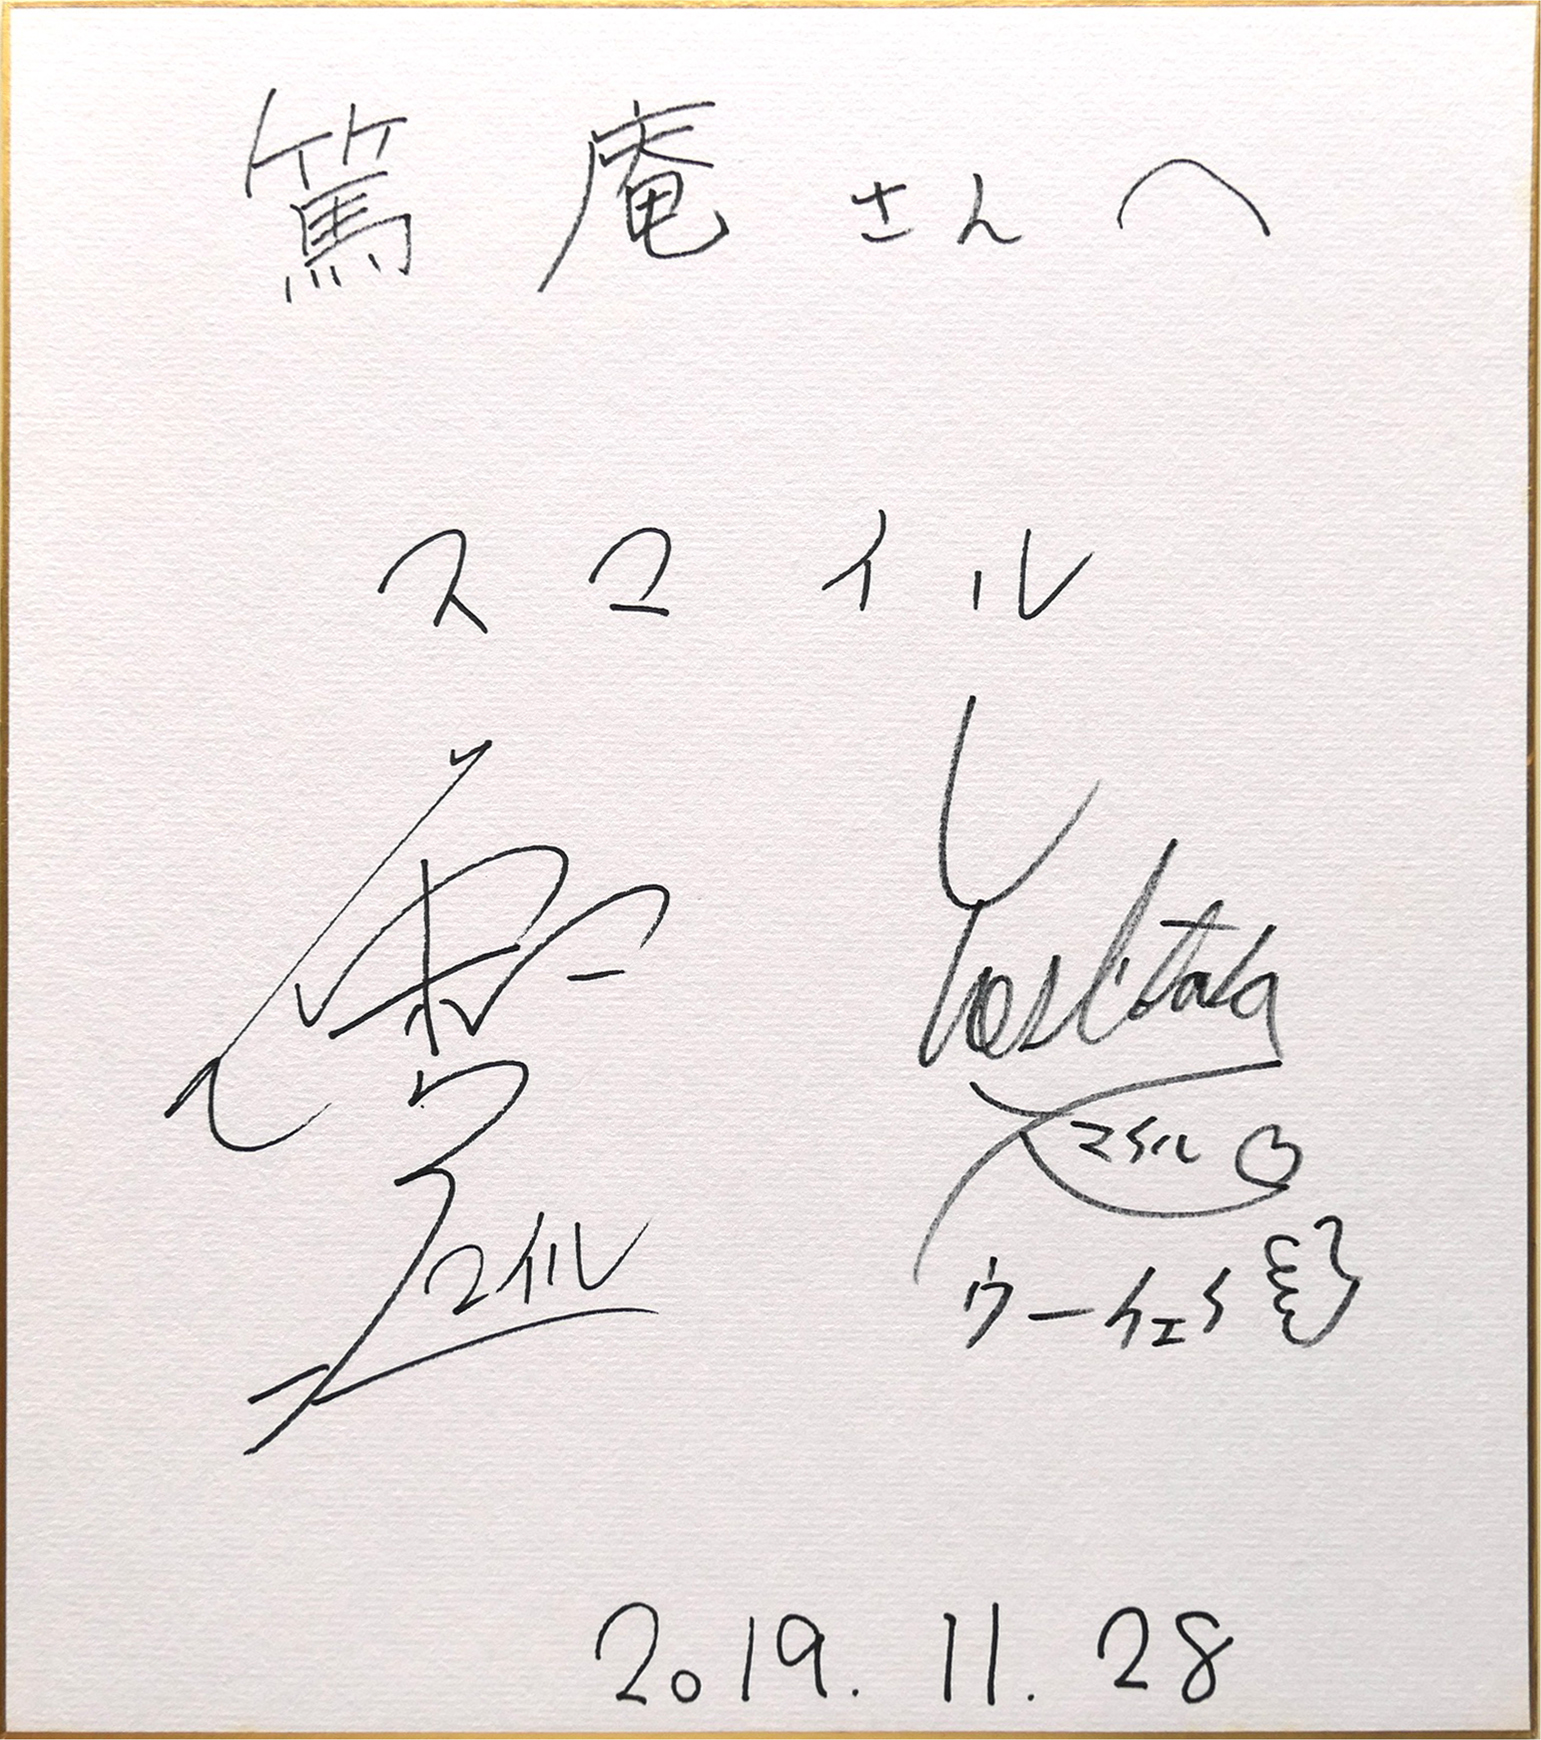 篤庵さんへ
スマイル
Yoshitaka
スマイル
マイル
ウーイェイ
2019.11.28